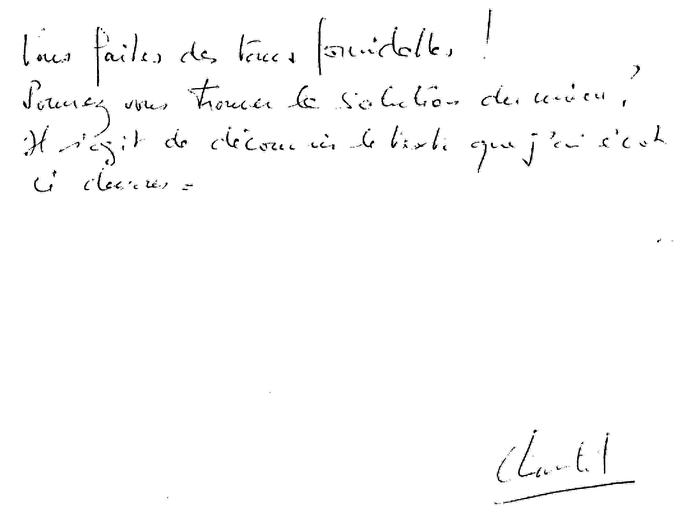 Vous faites des tours formidables !
Pouvez vous trouver la solution du mien ?
Il s'agit de découvrir le texte que j'ai écrit
ci dessous =
Chantal